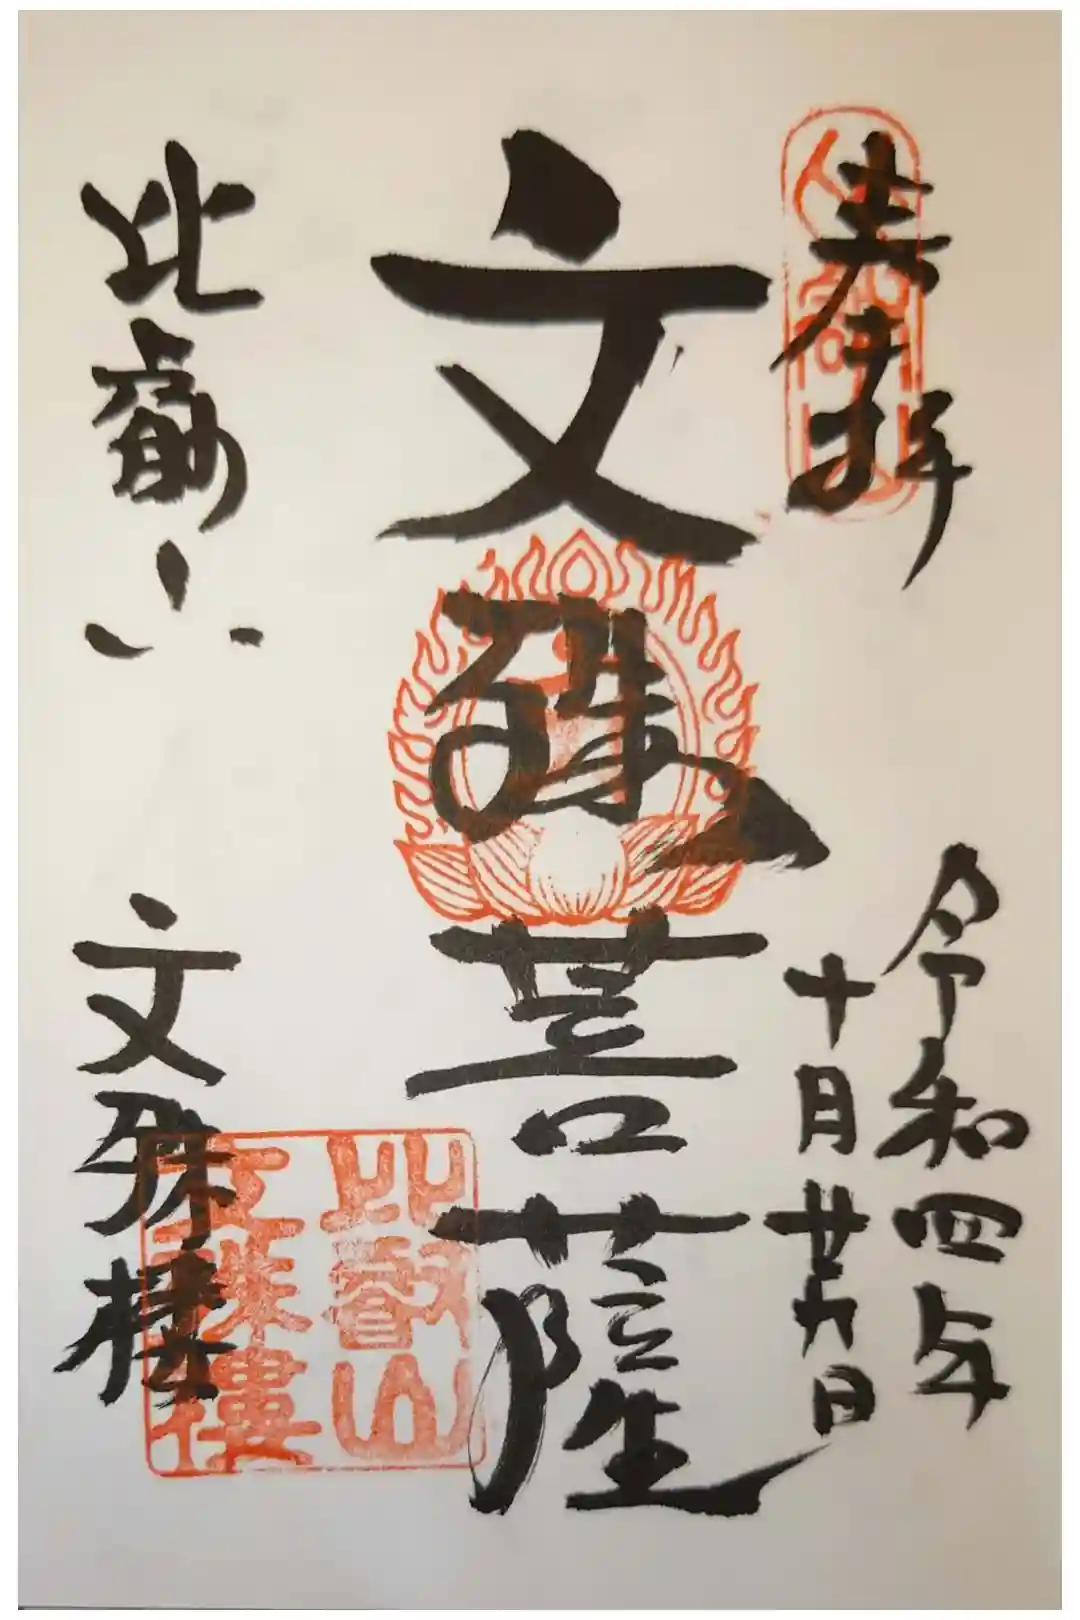 奉拝
令和四年
十月廿六日
文殊菩薩
比叡山
文殊楼
比叡山
文殊樓